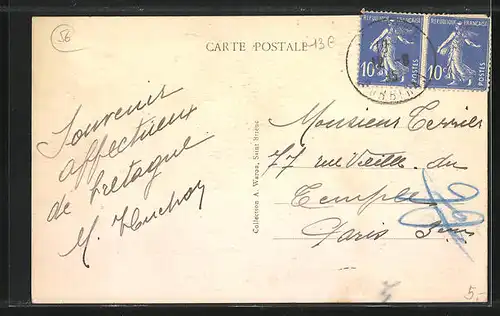 56
CARTE POSTALE
13€
REPUBLIQUE FRANÇAISE
10c
POSTES
REPUBLIQUE FRANÇAISE
10c
POSTES
MORBIHAN
Souvenir
affectueux
de Bretagne
M.
Collection A. Waron, Saint Brieuc
Monsieur Terrier
77 rue Vieille du
Temple
Paris
5.-